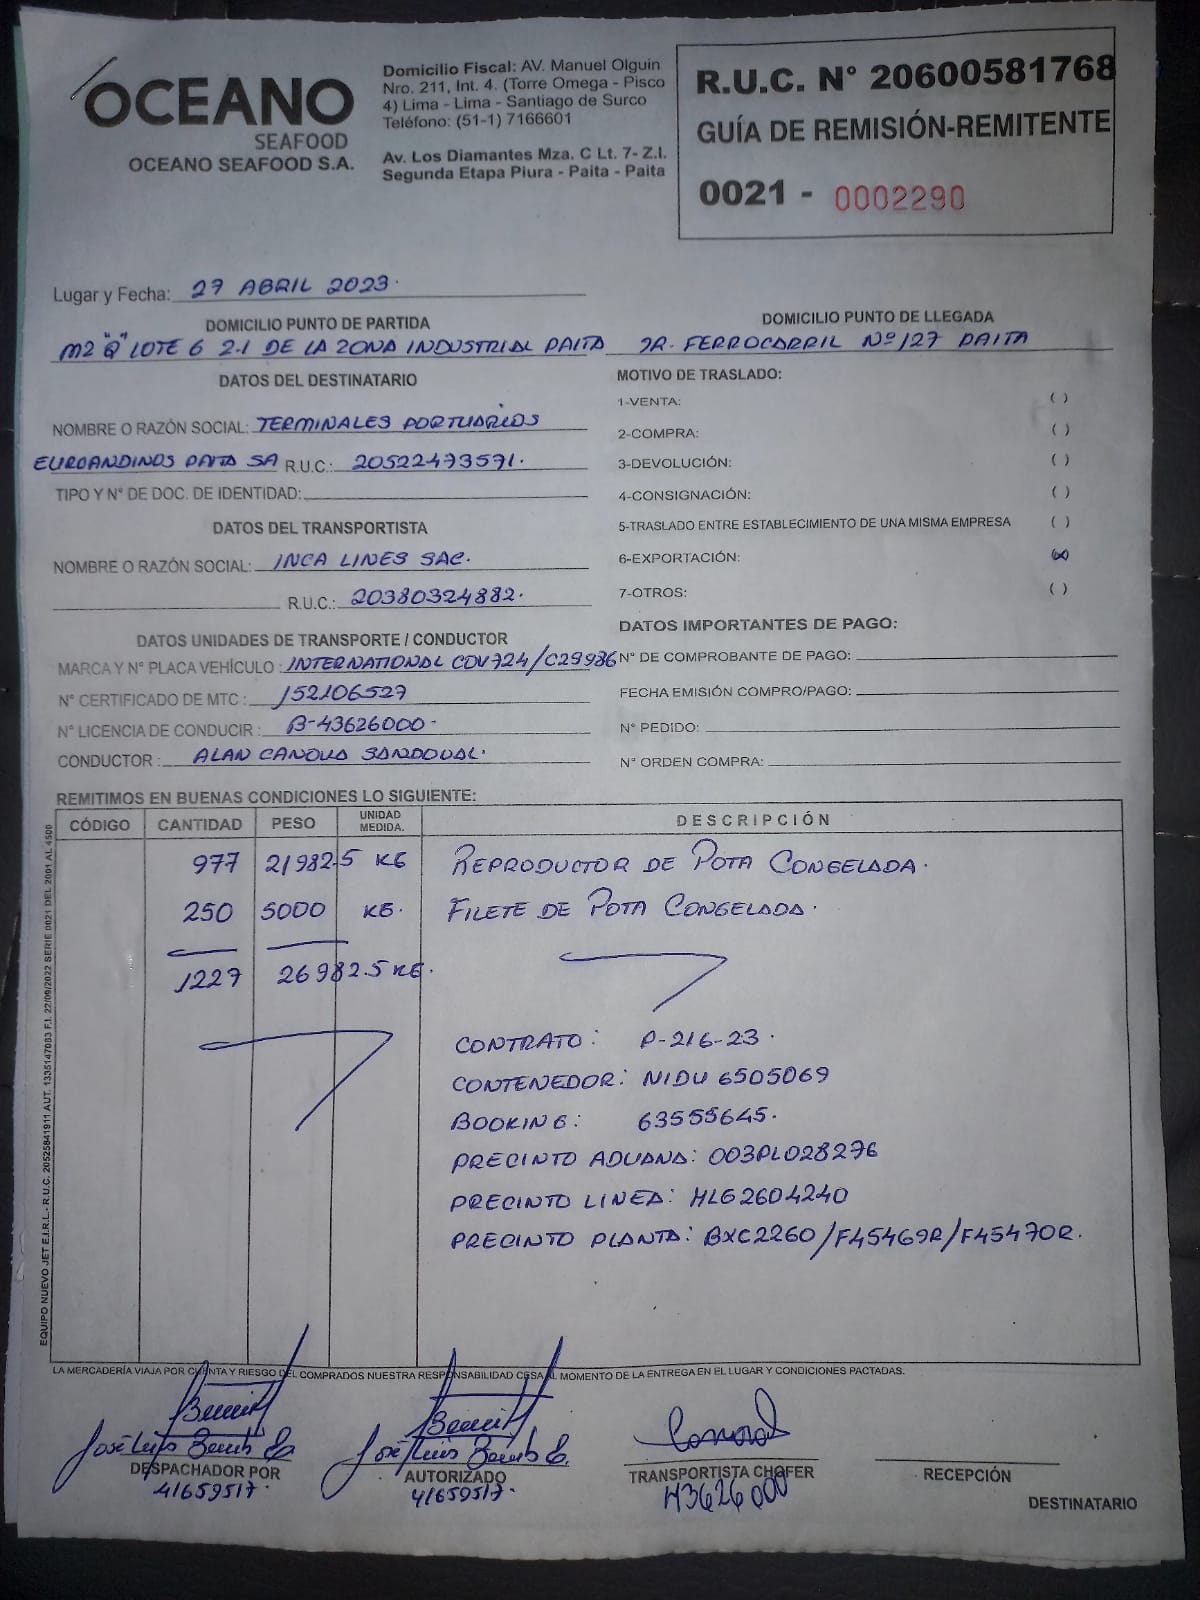 OCEANO
SEAFOOD
OCEANO SEAFOOD S.A.
Domicilio Fiscal: AV. Manuel Olguin
Nro. 211, Int. 4. (Torre Omega - Pisco
4) Lima - Lima - Santiago de Surco
Teléfono: (51-1) 7166601
Av. Los Diamantes Mza. C Lt. 7- Z.I.
Segunda Etapa Piura - Paita - Paita
R.U.C. N° 20600581768
GUÍA DE REMISIÓN-REMITENTE
0021 - 0002290
Lugar y Fecha: 27 ABRIL 2023.
DOMICILIO PUNTO DE PARTIDA
MZ "Q" LOTE 6 2.1 DE LA ZONA INDUSTRIAL PAITA
DOMICILIO PUNTO DE LLEGADA
JR. FERROCARRIL N° 127 PAITA
DATOS DEL DESTINATARIO
NOMBRE O RAZÓN SOCIAL: TERMINALES PORTUARIOS
EUROANDINOS PAITA SA R.U.C.: 20522473571.
TIPO Y N° DE DOC. DE IDENTIDAD:
DATOS DEL TRANSPORTISTA
NOMBRE O RAZÓN SOCIAL: INCA LINES SAC.
R.U.C.: 20380324882.
DATOS UNIDADES DE TRANSPORTE / CONDUCTOR
MARCA Y N° PLACA VEHÍCULO: INTERNATIONAL CDV724/C29986
N° CERTIFICADO DE MTC: 152106527
N° LICENCIA DE CONDUCIR: B-43626000.
CONDUCTOR: ALAN CANOVA SANDOVAL.
MOTIVO DE TRASLADO:
1-VENTA: ( )
2-COMPRA: ( )
3-DEVOLUCIÓN: ( )
4-CONSIGNACIÓN: ( )
5-TRASLADO ENTRE ESTABLECIMIENTO DE UNA MISMA EMPRESA ( )
6-EXPORTACIÓN: (x)
7-OTROS: ( )
DATOS IMPORTANTES DE PAGO:
N° DE COMPROBANTE DE PAGO:
FECHA EMISIÓN COMPRO/PAGO:
N° PEDIDO:
N° ORDEN COMPRA:
REMITIMOS EN BUENAS CONDICIONES LO SIGUIENTE:
CÓDIGO CANTIDAD PESO UNIDAD MEDIDA. DESCRIPCIÓN
977 21982.5 KG REPRODUCTOR DE POTA CONGELADA.
250 5000 KG. FILETE DE POTA CONGELADA.
1227 26982.5 KG.
CONTRATO: P-216-23.
CONTENEDOR: NIDU 6505069
BOOKING: 63555645.
PRECINTO ADUANA: 003PL028276
PRECINTO LINEA: HLG2604240
PRECINTO PLANTA: BXC2260/F45469R/F45470R.
EQUIPO NUEVO JET E.I.R.L.- R.U.C. 20525841911 AUT. 1335147083 F.I. 22/09/2022 SERIE 0021 DEL 2001 AL 4500
LA MERCADERÍA VIAJA POR CUENTA Y RIESGO DEL COMPRADOS NUESTRA RESPONSABILIDAD CESA AL MOMENTO DE LA ENTREGA EN EL LUGAR Y CONDICIONES PACTADAS.
José Luis
DESPACHADOR POR
41659517.
José Luis
AUTORIZADO
41659517.
TRANSPORTISTA CHOFER
43626000
RECEPCIÓN
DESTINATARIO